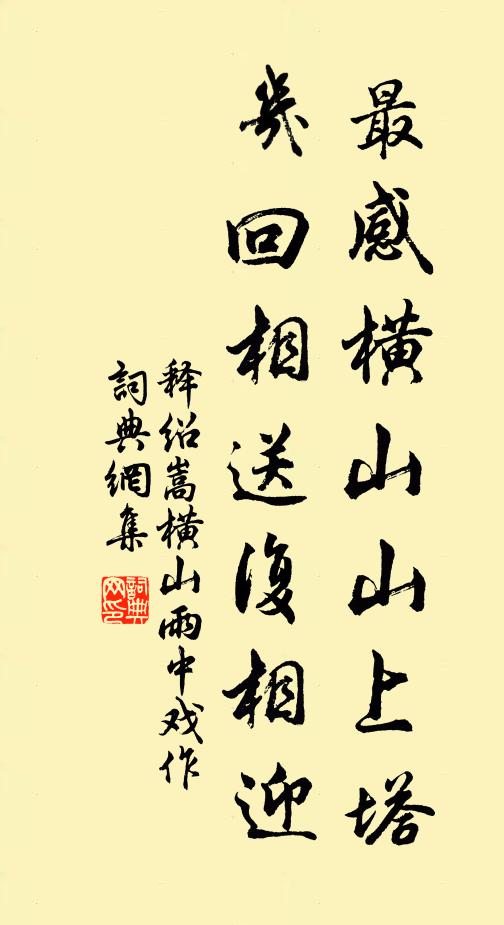 最感横山山上塔
幾回相送復相迎
释绍嵩横山雨中戏作
詞典網集
詞典網印